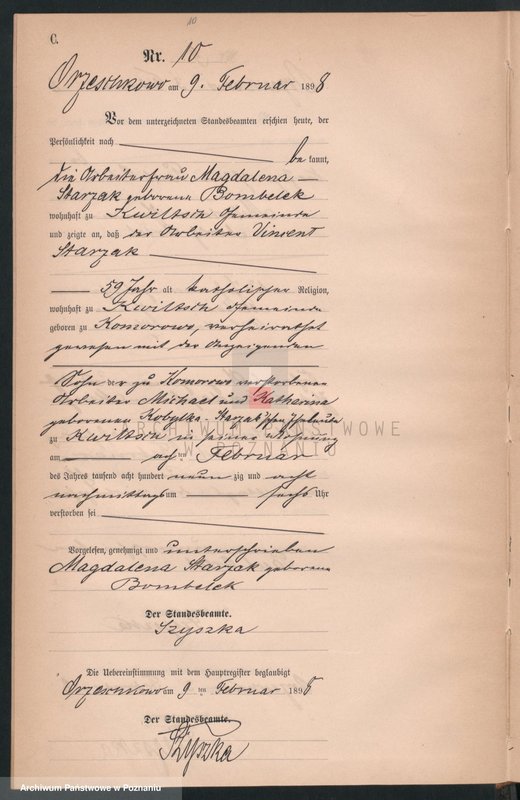 10
C.
Nr. 10
Orzeschkowo am 9. Februar 1898
Vor dem unterzeichneten Standesbeamten erschien heute, der
Persönlichkeit nach
be kannt,
die Arbeiterfrau Magdalena
Starzak geborene Bombelek
wohnhaft zu Kwiltsch Gemeinde
und zeigte an, daß der Arbeiter Vincent
Starzak
59 Jahr alt katholischer Religion,
wohnhaft zu Kwiltsch Gemeinde
geboren zu Komorowo, verheirathet
gewesen mit der Anzeigenden
Sohn der zu Komorowo verstorbenen
Arbeiter Michael und Katharina
geborenen Kobylka-Starzak'schen Eheleute
zu Kwiltsch in seiner Wohnung
am acht ten Februar
des Jahres tausend acht hundert neun zig und acht
nachmittags um sechs Uhr
verstorben sei
Vorgelesen, genehmigt und unterschrieben
Magdalena Starzak geborene
Bombelek
Der Standesbeamte.
Szyszka
Die Uebereinstimmung mit dem Hauptregister beglaubigt
Orzeschkowo am 9 ten Februar 1898
Der Standesbeamte.
Szyszka
ARCHIWUM PAŃSTWOWE
W POZNANIU
Archiwum Państwowe w Poznaniu